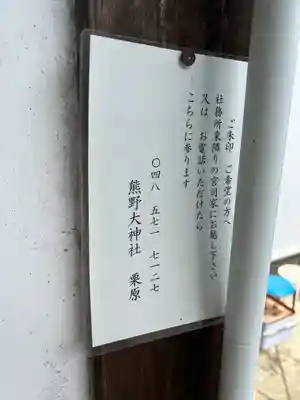 ご朱印　ご希望の方へ
社務所東隣りの宮司家にお越し下さい
又は　お電話いただけたら
こちらに参ります
〇四八　五七一　七一二七
熊野大神社　栗原